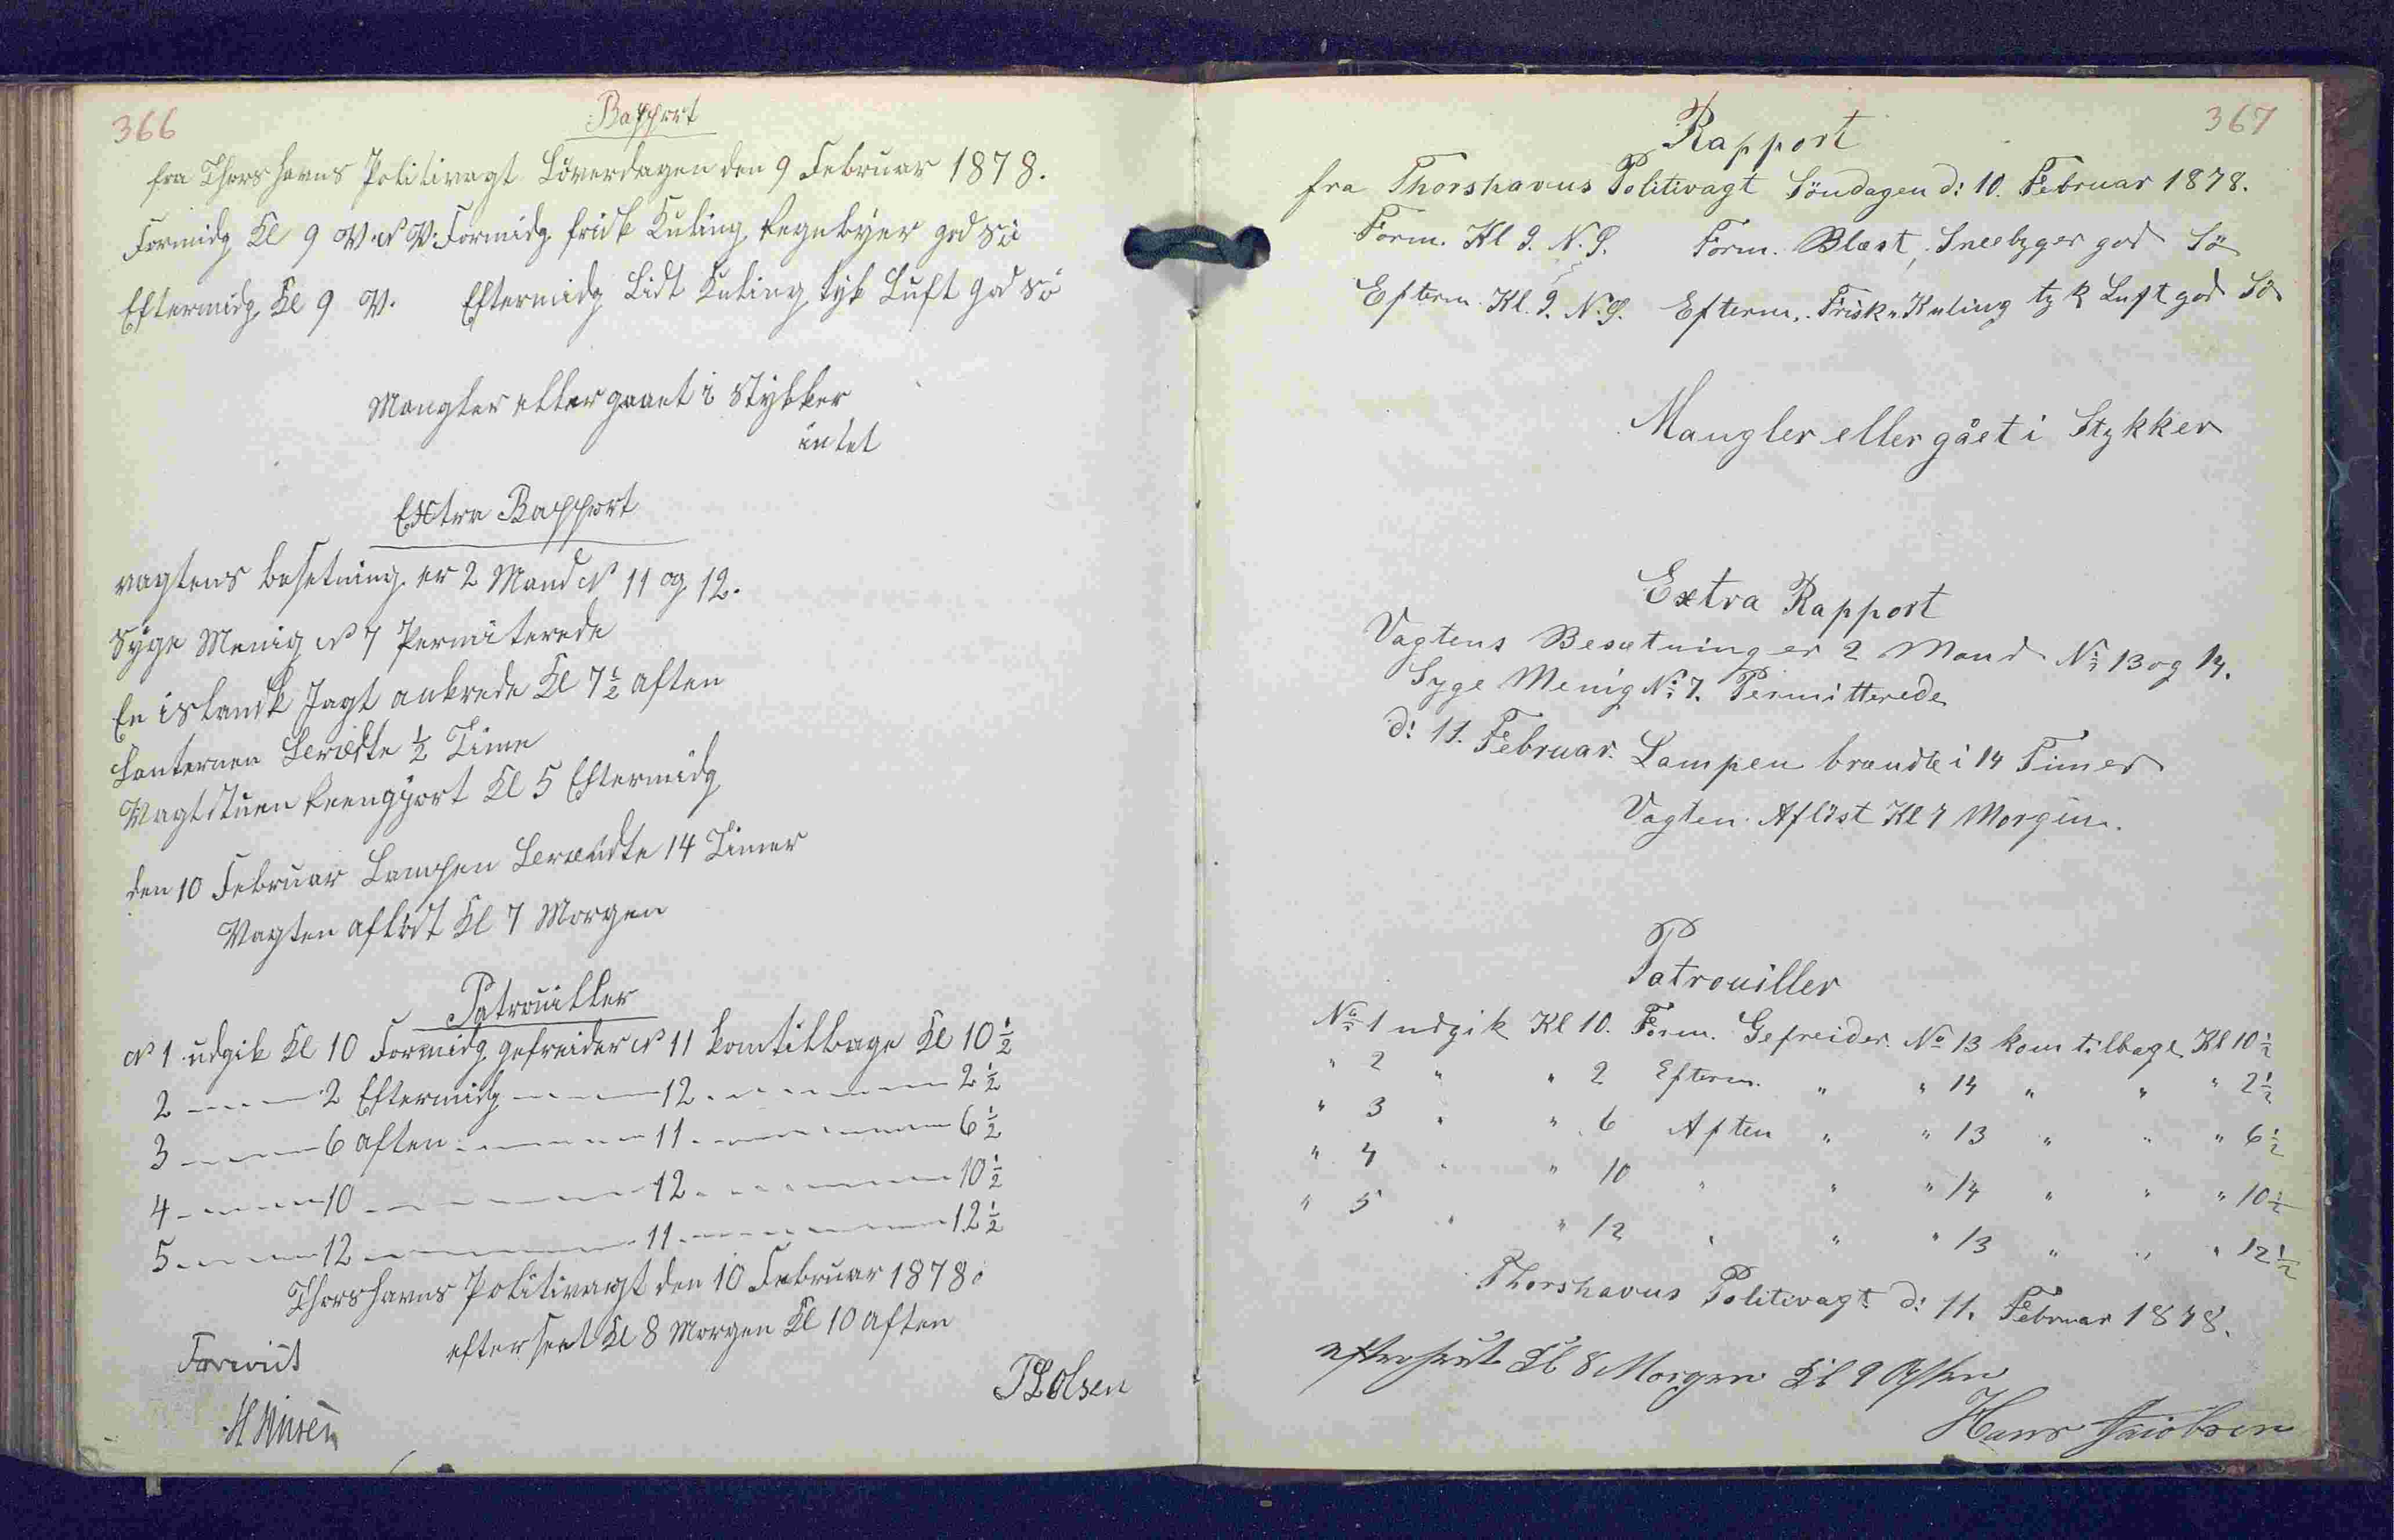 366
Rapport
fra Thorshavns Politivagt Löverdagen den 9 Februar 1878.
Formidg Kl 9 V. N V. Formidg frisk Kuling Regnbyer god Sö
Eftermidg Kl 9 V. Eftermidg Lidt Kuling tyk Luft god Sö
Mangler eller gaaet i Stykker
intet
Extra Rapport
vagtens besetning er 2 Mand N 11 og 12.
Syge Menig N 7 Permiterede
En islandsk Jagt ankrede Kl 7 1/2 aften
Lanternen Berædte 1/2 Time
Vagtstuen Reengjort Kl 5 Eftermidg
den 10 Februar Lampen Berændte 14 Timer
Vagten aflöst Kl 7 Morgen
Patrouiller
N 1 udgik Kl 10 Formidg gefreider N 11 kom tilbage Kl 10 1/2
2 - - - - 2 Eftermidg - - - - 12 - - - - 2 1/2
3 - - - - 6 aften - - - - 11 - - - - 6 1/2
4 - - - - 10 - - - - 12 - - - - 10 1/2
5 - - - - 12 - - - - 11 - - - - 12 1/2
Thorshavns Politivagt den 10 Februar 1878.
efterseet Kl 8 Morgen Kl 10 Aften
Forevist
Olsen
367
Rapport
fra Thorshavns Politivagt Söndagen d: 10. Februar 1878.
Form. Kl 9. N.Ö. Form. Blæst, Sneebyger god Sö
Efterm. Kl. 9. N.Ö. Efterm. Frisk Kuling tyk Luft god Sö
Mangler eller gået i Stykker
Extra Rapport
Vagtens Besætning er 2 Mand No 13 og 14.
Syge Menig No 7. Permitterede
d: 11. Februar. Lampen brændte i 14 Timer
Vagten Aflöst Kl 7 Morgen.
Patrouiller
No 1 udgik Kl 10. Form. Gefreider. No 13 kom tilbage Kl 10 1/2
" 2 " " 2 Efterm. " " 14 " " " 2 1/2
" 3 " " 6 Aften " " 13 " " " 6 1/2
" 4 " " 10 " " " 14 " " " 10 1/2
" 5 " " 12 " " " 13 " " " 12 1/2
Thorshavns Politivagt d: 11. Februar 1878.
efterseet Kl 8 Morgen Kl 9 Aften
Hans Jacobsen